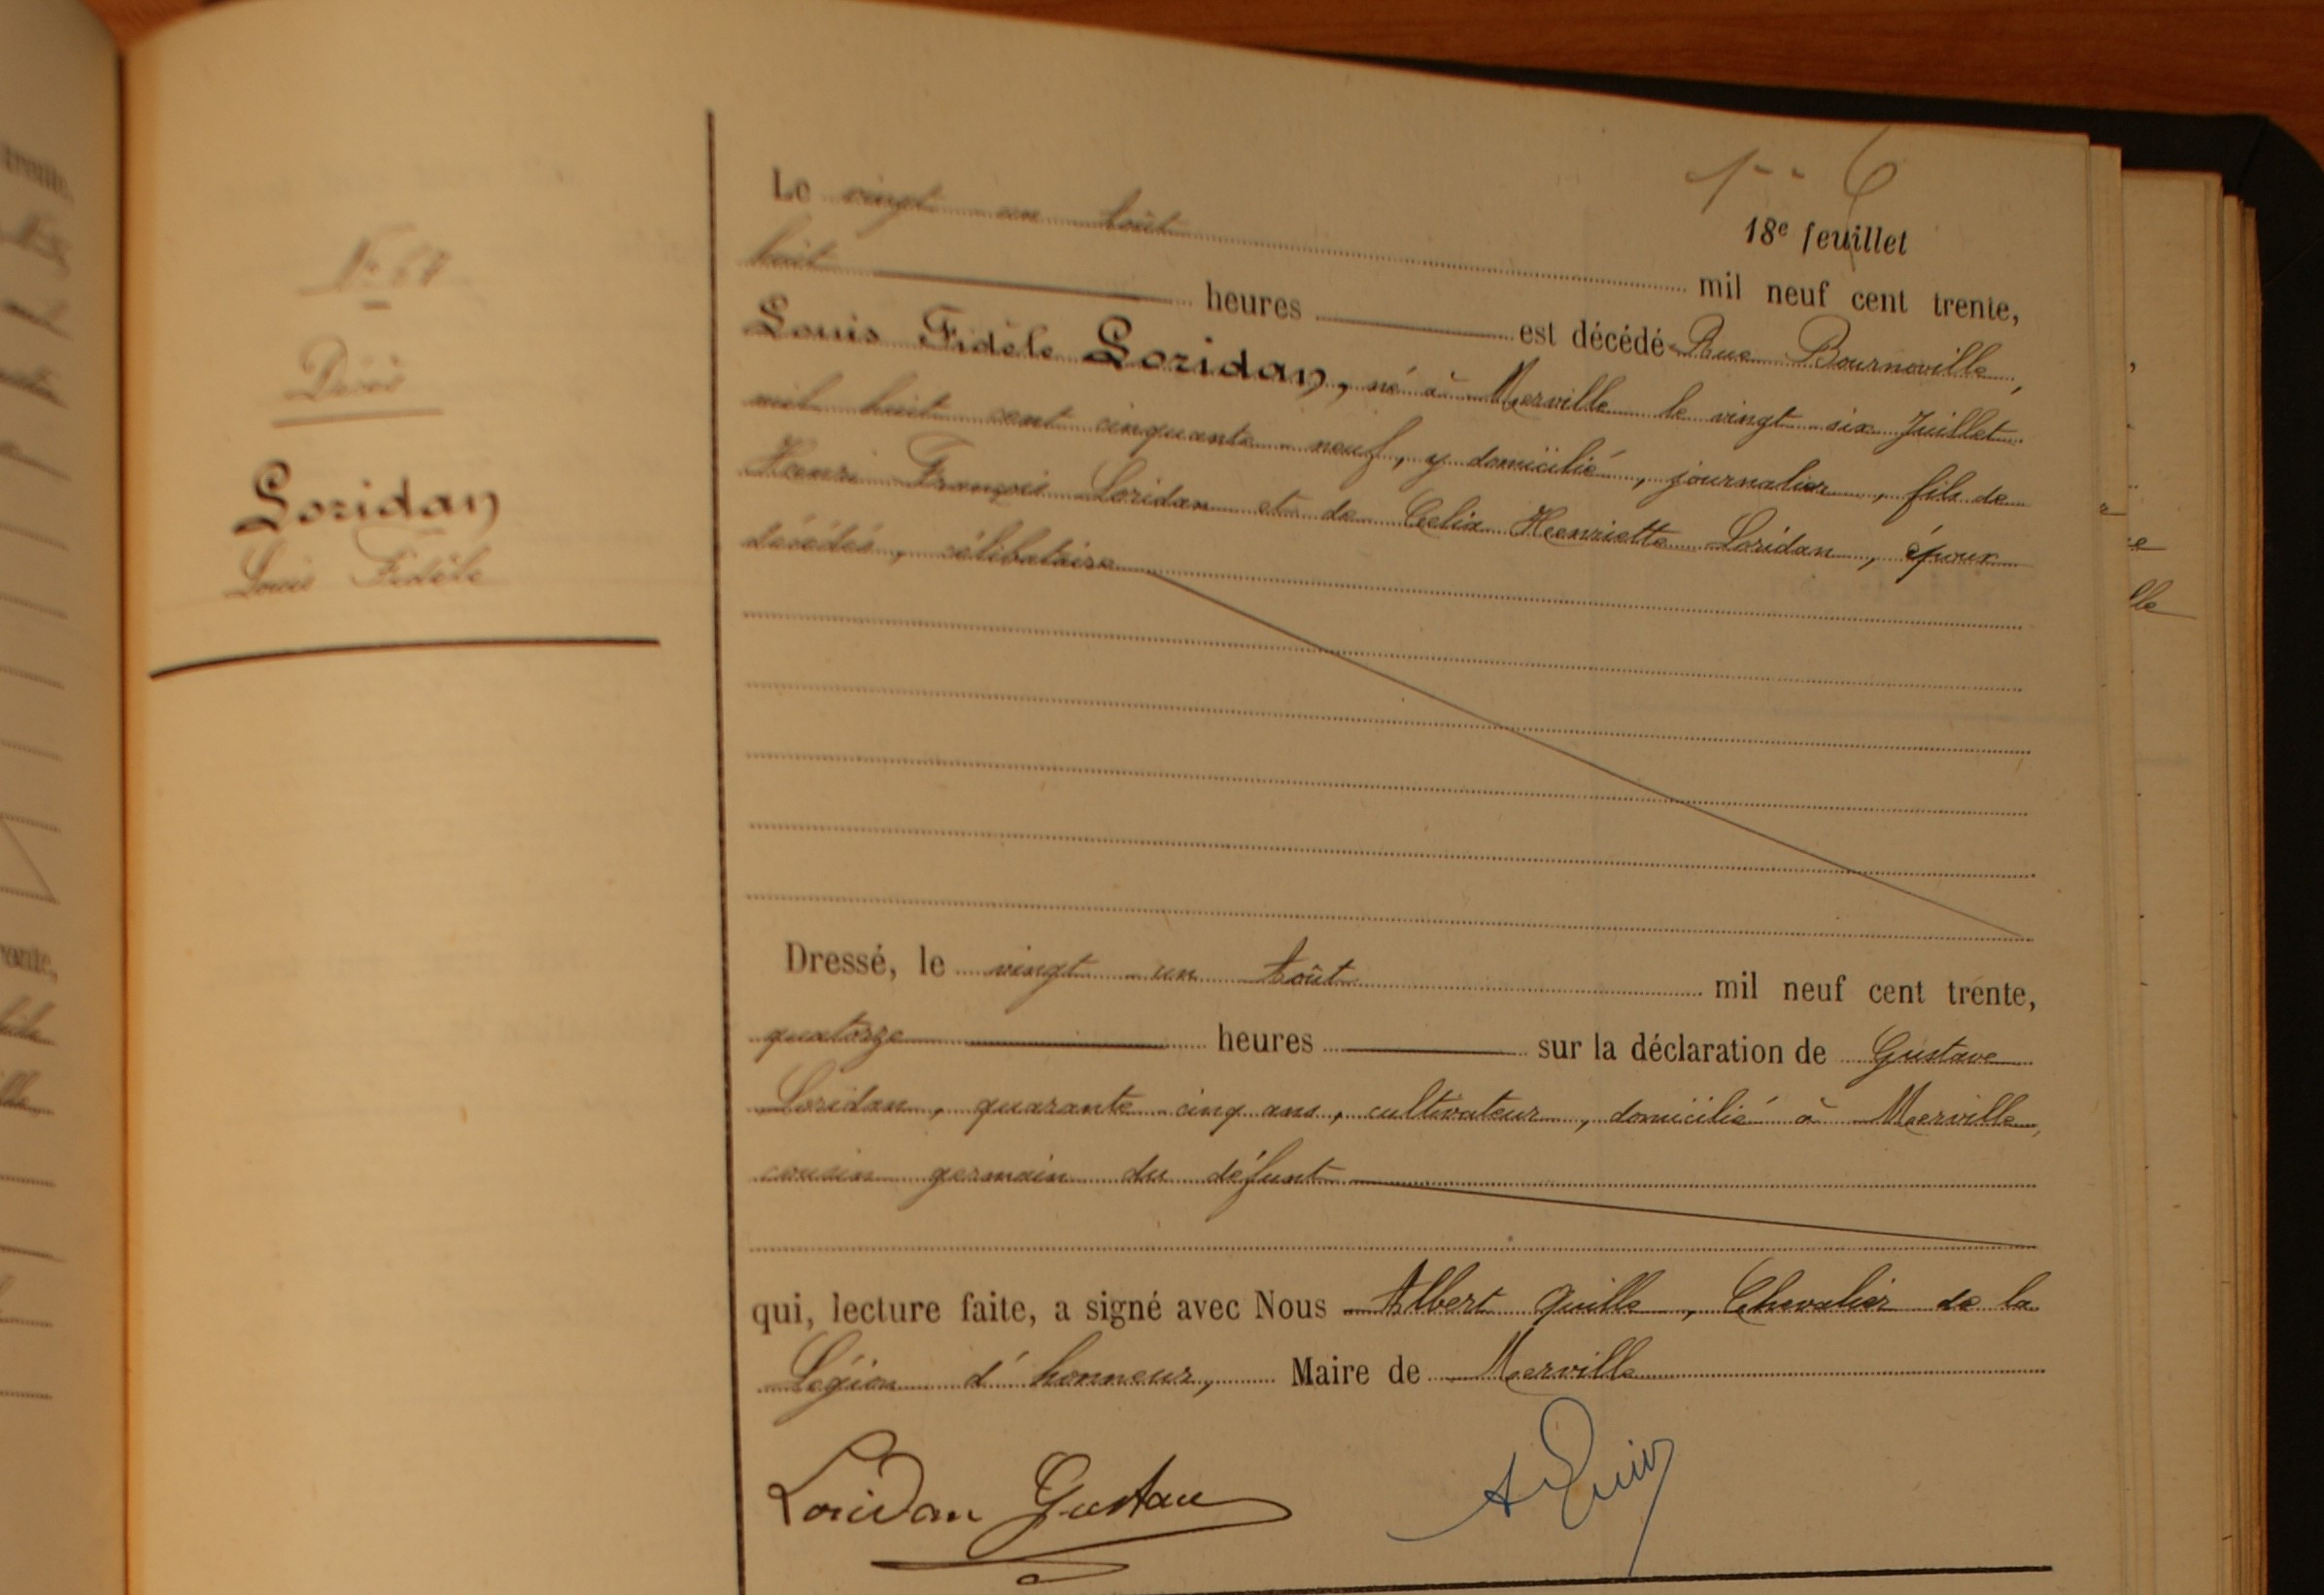 18e feuillet
Le vingt un Août mil neuf cent trente,
huit heures est décédé Rue Bournoville,
Louis Fidèle Loridan, né à Merville le vingt six Juillet
mil huit cent cinquante-neuf, y domicilié, journalier, fils de
Henri François Loridan et de Celia Henriette Loridan, époux
décédés, célibataire
Décès
Loridan
Louis Fidèle
Dressé, le vingt un Août mil neuf cent trente,
quatorze heures sur la déclaration de Gustave
Loridan, quarante-cinq ans, cultivateur, domicilié à Merville,
cousin germain du défunt
qui, lecture faite, a signé avec Nous Albert Quille, Chevalier de la
Légion d'honneur, Maire de Merville
Loridan Gustave